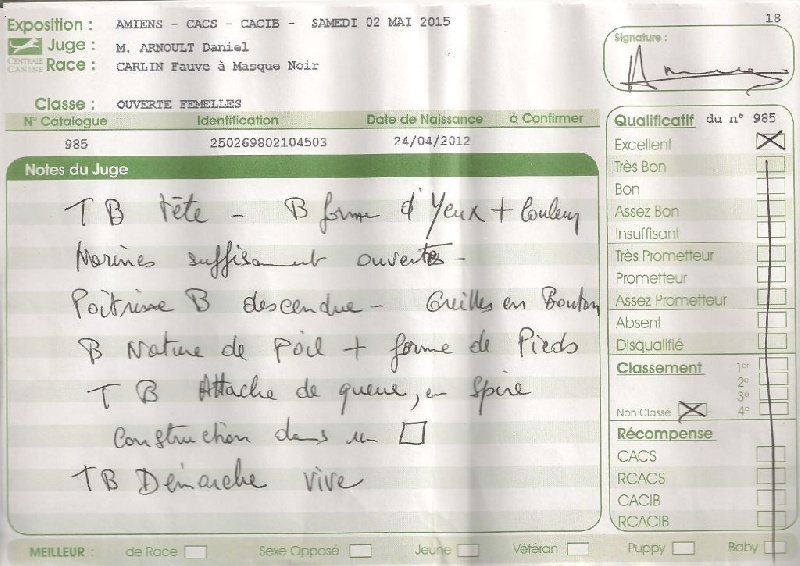 18
Exposition : AMIENS - CACS - CACIB - SAMEDI 02 MAI 2015
Juge : M. ARNOULT Daniel
CENTRALE CANINE
Race : CARLIN Fauve à Masque Noir
Signature :
Classe : OUVERTE FEMELLES
N° Catalogue Identification Date de Naissance à Confirmer
985 250269802104503 24/04/2012
Notes du Juge
TB tête - B forme d'Yeux + Couleur
Narines suffisamment ouvertes -
Poitrine B descendue - Oreilles en Bouton
B Nature de poil + forme de Pieds
TB Attache de queue, en spire
Construction dans un □
TB Démarche vive
Qualificatif du n° 985
Excellent
Très Bon
Bon
Assez Bon
Insuffisant
Très Prometteur
Prometteur
Assez Prometteur
Absent
Disqualifié
Classement 1er
2e
3e
Non Classé 4e
Récompense
CACS
RCACS
CACIB
RCACIB
MEILLEUR : de Race Sexe Opposé Jeune Vétéran Puppy Baby